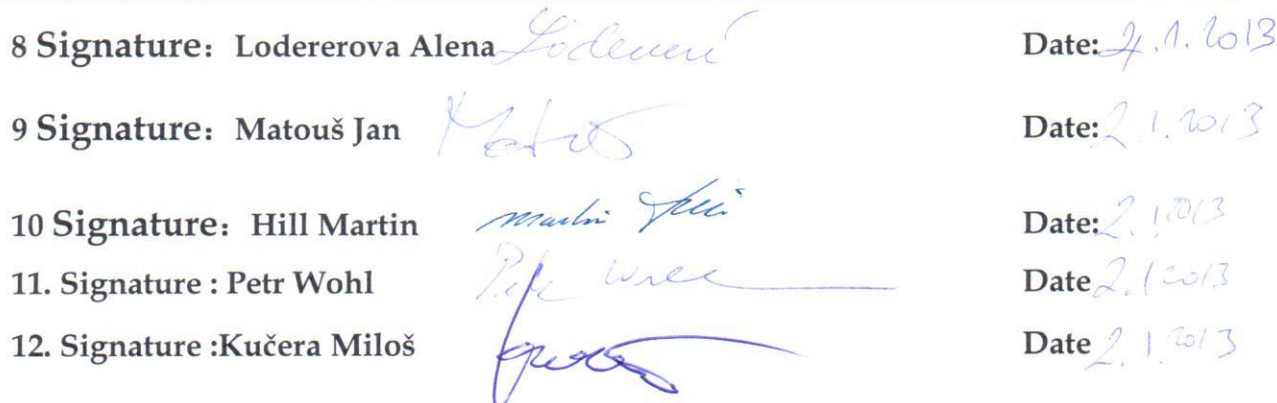 8 Signature: Lodererova Alena Date: 2.1.2013
9 Signature: Matouš Jan Matouš Date: 2.1.2013
10 Signature: Hill Martin Martin Hill Date: 2.1.2013
11. Signature : Petr Wohl Petr Wohl Date 2.1.2013
12. Signature :Kučera Miloš Date 2.1.2013